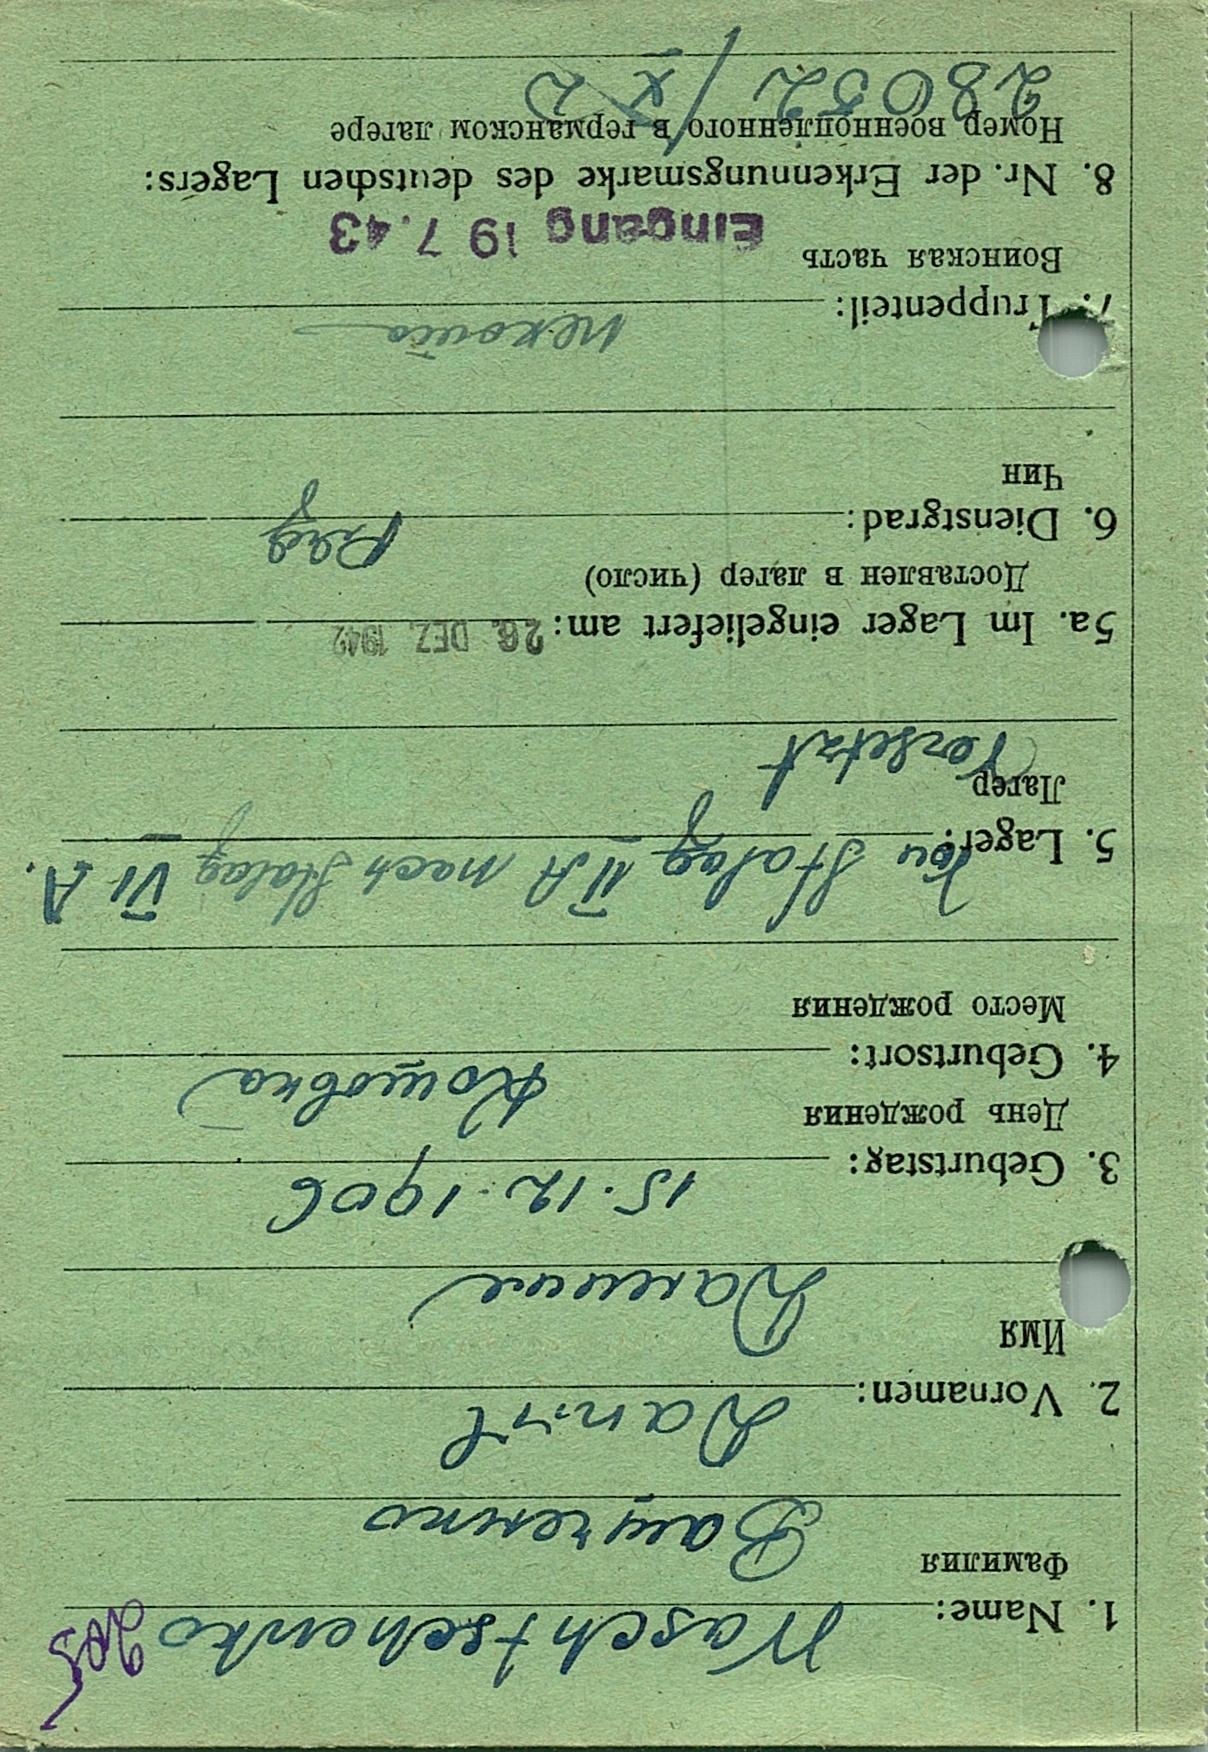 1. Name: Waschtschenko
Фамилия
Ващенко
2. Vornamen: Daniil
Имя
Даниил
3. Geburtstag: 15.12.1906
День рождения
4. Geburtsort:
Место рождения
Von Stalag II A nach Stalag VI A.
5. Lager:
Лагер
Versetzt
5a. Im Lager eingeliefert am: 26. DEZ. 1942
Доставлен в лагер (число)
6. Dienstgrad: Ряд
Чин
7. Truppenteil: пехота
Воинская часть
Eingang 19 7.43
8. Nr. der Erkennungsmarke des deutschen Lagers:
Номер военнопленного в германском лагере
28052 / X D